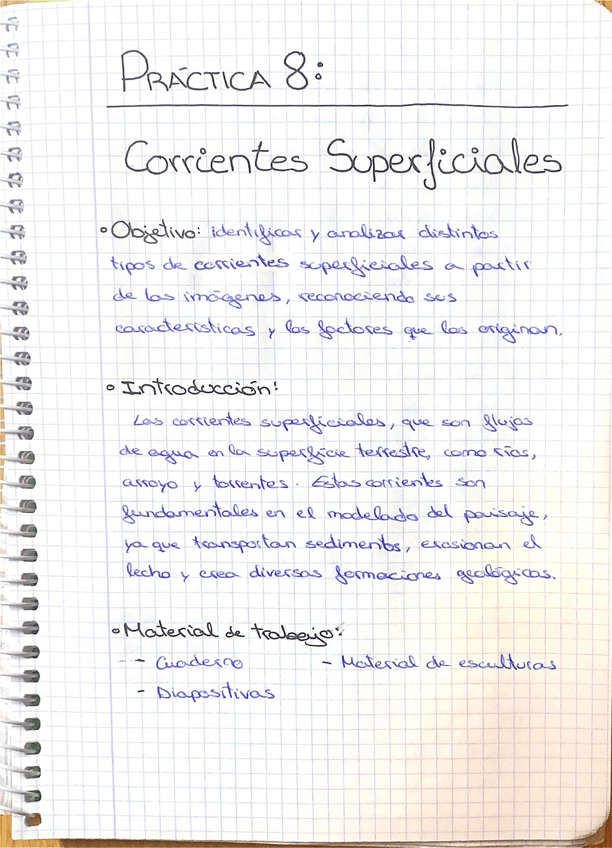 PRÁCTICA 8:
Corrientes Superficiales
• Objetivo: identificar y analizar distintos
tipos de corrientes superficiales a partir
de las imágenes, reconociendo sus
características y los factores que las originan.
• Introducción:
Las corrientes superficiales, que son flujas
de agua en la superficie terrestre, como rías,
arroyo y torrentes. Estas corrientes son
fundamentales en el modelado del paisaje,
ya que transportan sedimentos, erosionan el
lecho y crea diversas formaciones geológicas.
• Material de trabajo:
- Cuaderno - Material de esculturas
- Diapositivas